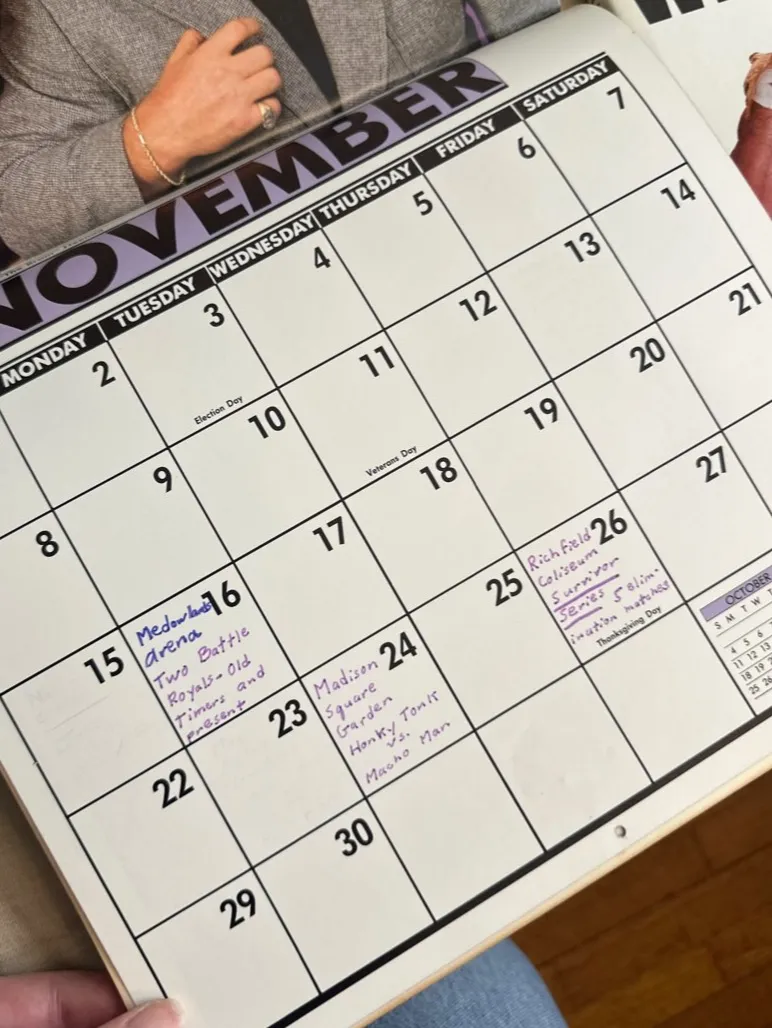 NOVEMBER
MONDAY TUESDAY WEDNESDAY THURSDAY FRIDAY SATURDAY
2 3 4 5 6 7
Election Day
8 9 10 11 12 13 14
Veterans Day
15 16 17 18 19 20 21
Medowlands
arena
Two Battle
Royals - Old
Timers and
present
22 23 24 25 26 27
Madison
Square
Garden
Honky Tonk
vs.
Macho Man
Richfield
Coliseum
Survivor
Series 5 elim-
ination matches
Thanksgiving Day
29 30
OCTOBER
S M T W T
4 5 6
11 12 13
18 19 20
25 26